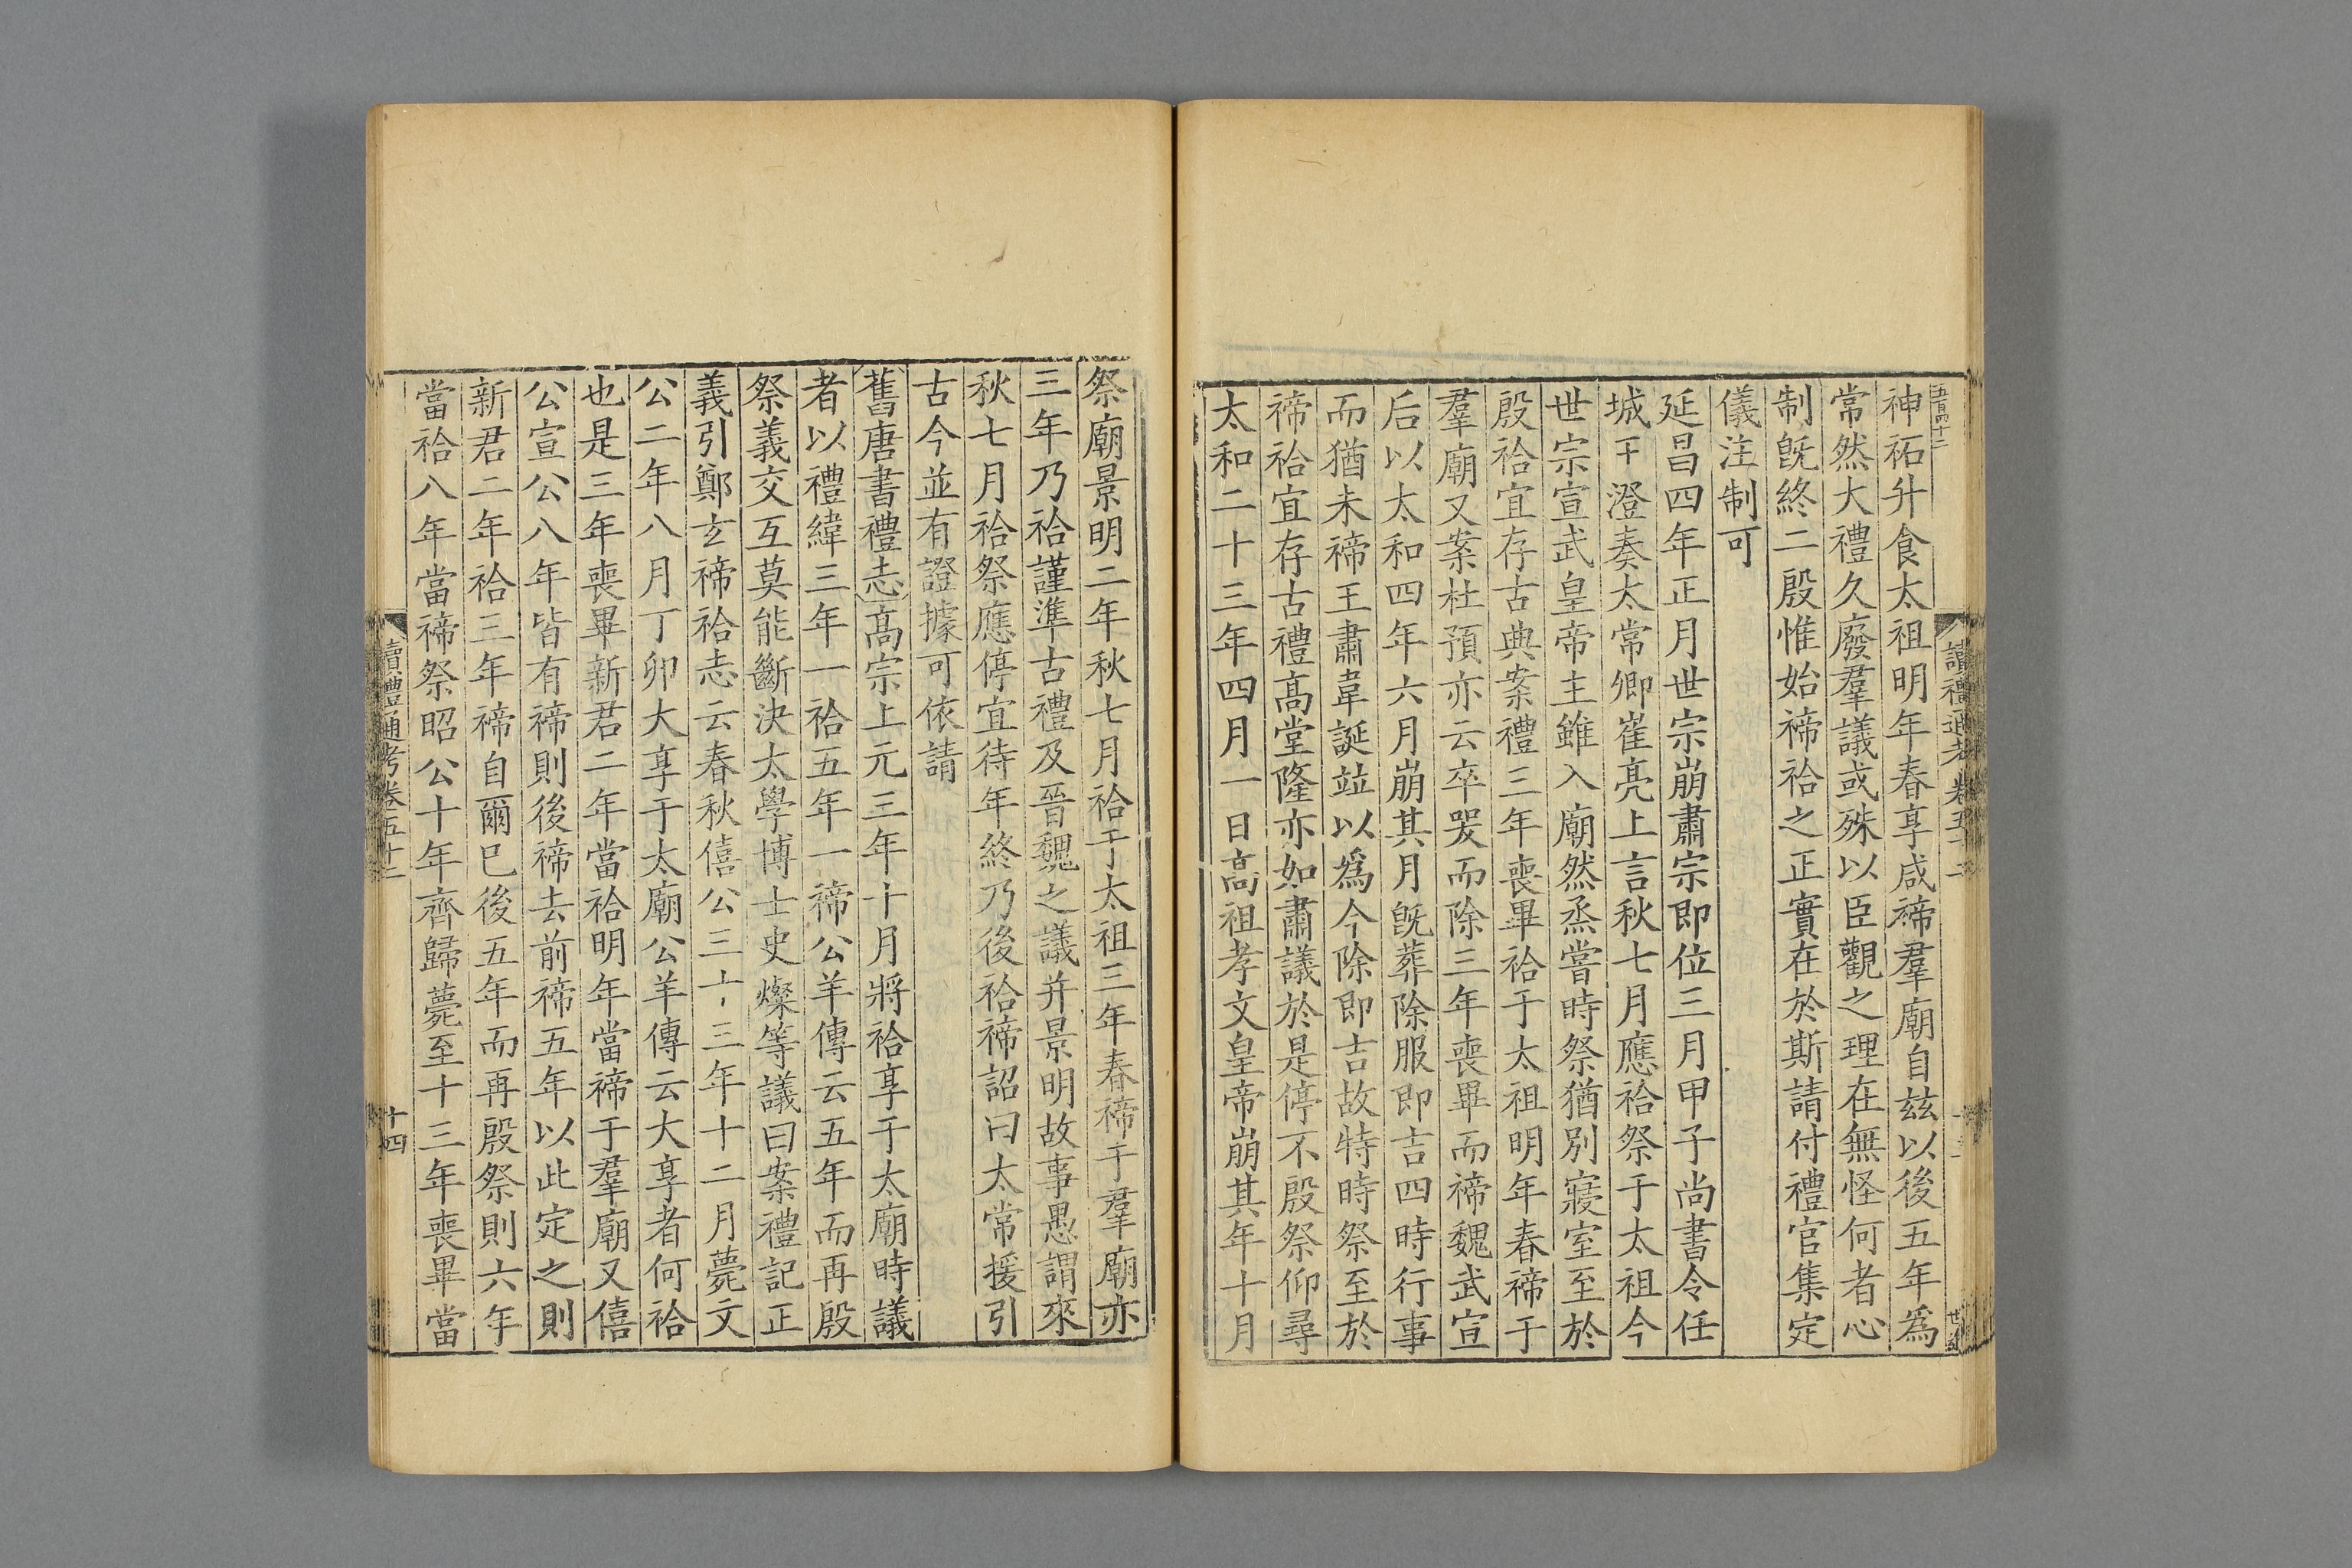 神祏升食太祖明年春享咸禘羣廟自兹以後五年爲
常然大禮久廢羣議或殊以臣觀之理在無怪何者心
制旣終二殷惟始禘祫之正實在於斯請付禮官集定
儀注制可
延昌四年正月世宗崩肅宗即位三月甲子尚書令任
城王澄奏太常卿崔亮上言秋七月應祫祭于太祖今
世宗宣武皇帝主雖入廟然烝嘗時祭猶別寢室至於
殷祫宜存古典案禮三年喪畢祫于太祖明年春禘于
羣廟又案杜預亦云卒哭而除三年喪畢而禘魏武宣
后以太和四年六月崩其月旣葬除服即吉四時行事
而猶未禘王肅韋誕竝以爲今除即吉故特時祭至於
禘祫宜存古禮高堂隆亦如肅議於是停不殷祭仰尋
太和二十三年四月一日高祖孝文皇帝崩其年十月
祭廟景明二年秋七月祫于太祖三年春禘于羣廟亦
三年乃祫謹準古禮及晉魏之議并景明故事愚謂來
秋七月祫祭應停宜待年終乃後祫禘詔曰太常援引
古今並有證據可依請
舊唐書禮志高宗上元三年十月將祫享于太廟時議
者以禮緯三年一祫五年一禘公羊傳云五年而再殷
祭義交互莫能斷決太學博士史燦等議曰案禮記正
義引鄭玄禘祫志云春秋僖公三十三年十二月薨文
公二年八月丁卯大享于太廟公羊傳云大享者何祫
也是三年喪畢新君二年當祫明年當禘于羣廟又僖
公宣公八年皆有禘則後禘去前禘五年以此定之則
新君二年祫三年禘自爾已後五年而再殷祭則六年
當祫八年當禘祭昭公十年齊歸薨至十三年喪畢當
讀禮通考卷五十二
十四